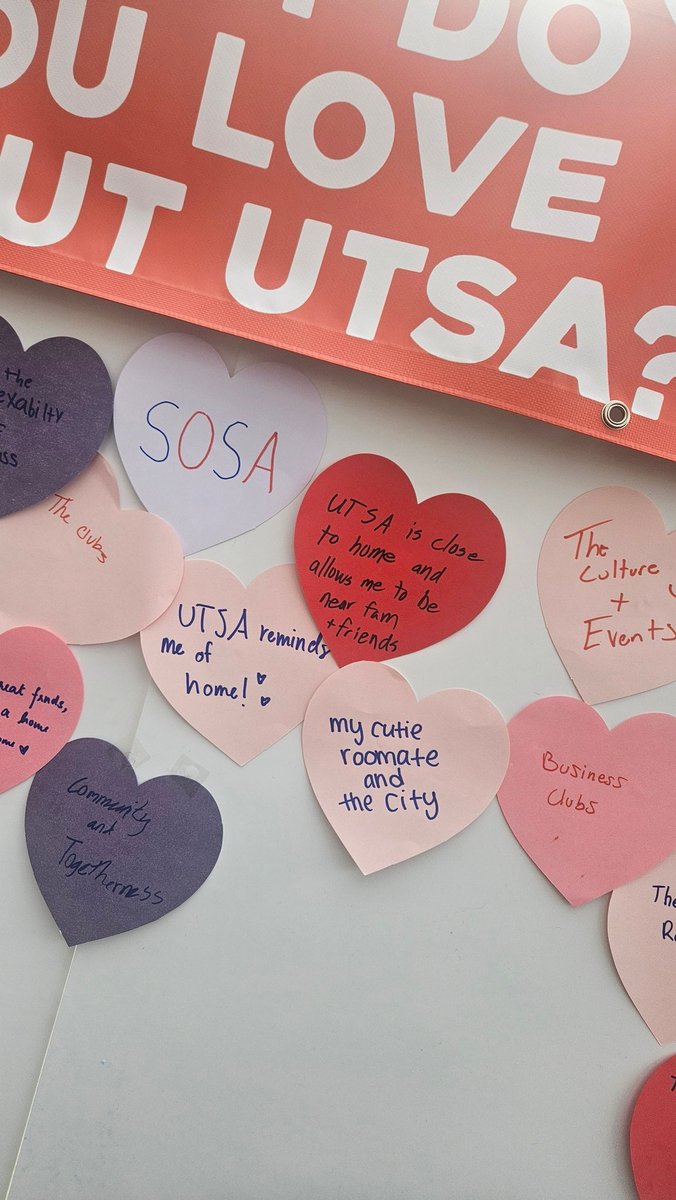 DO
OU LOVE
UT UTSA?
the
exabilty
SOSA
The clubs
UTSA is close
to home and
allows me to be
near fam
+friends
The
Culture
+
Events
UTSA reminds
me of
home!
reat finds,
a home
my cutie
roomate
and
the City
Business
Clubs
Community
and
Togetherness
The